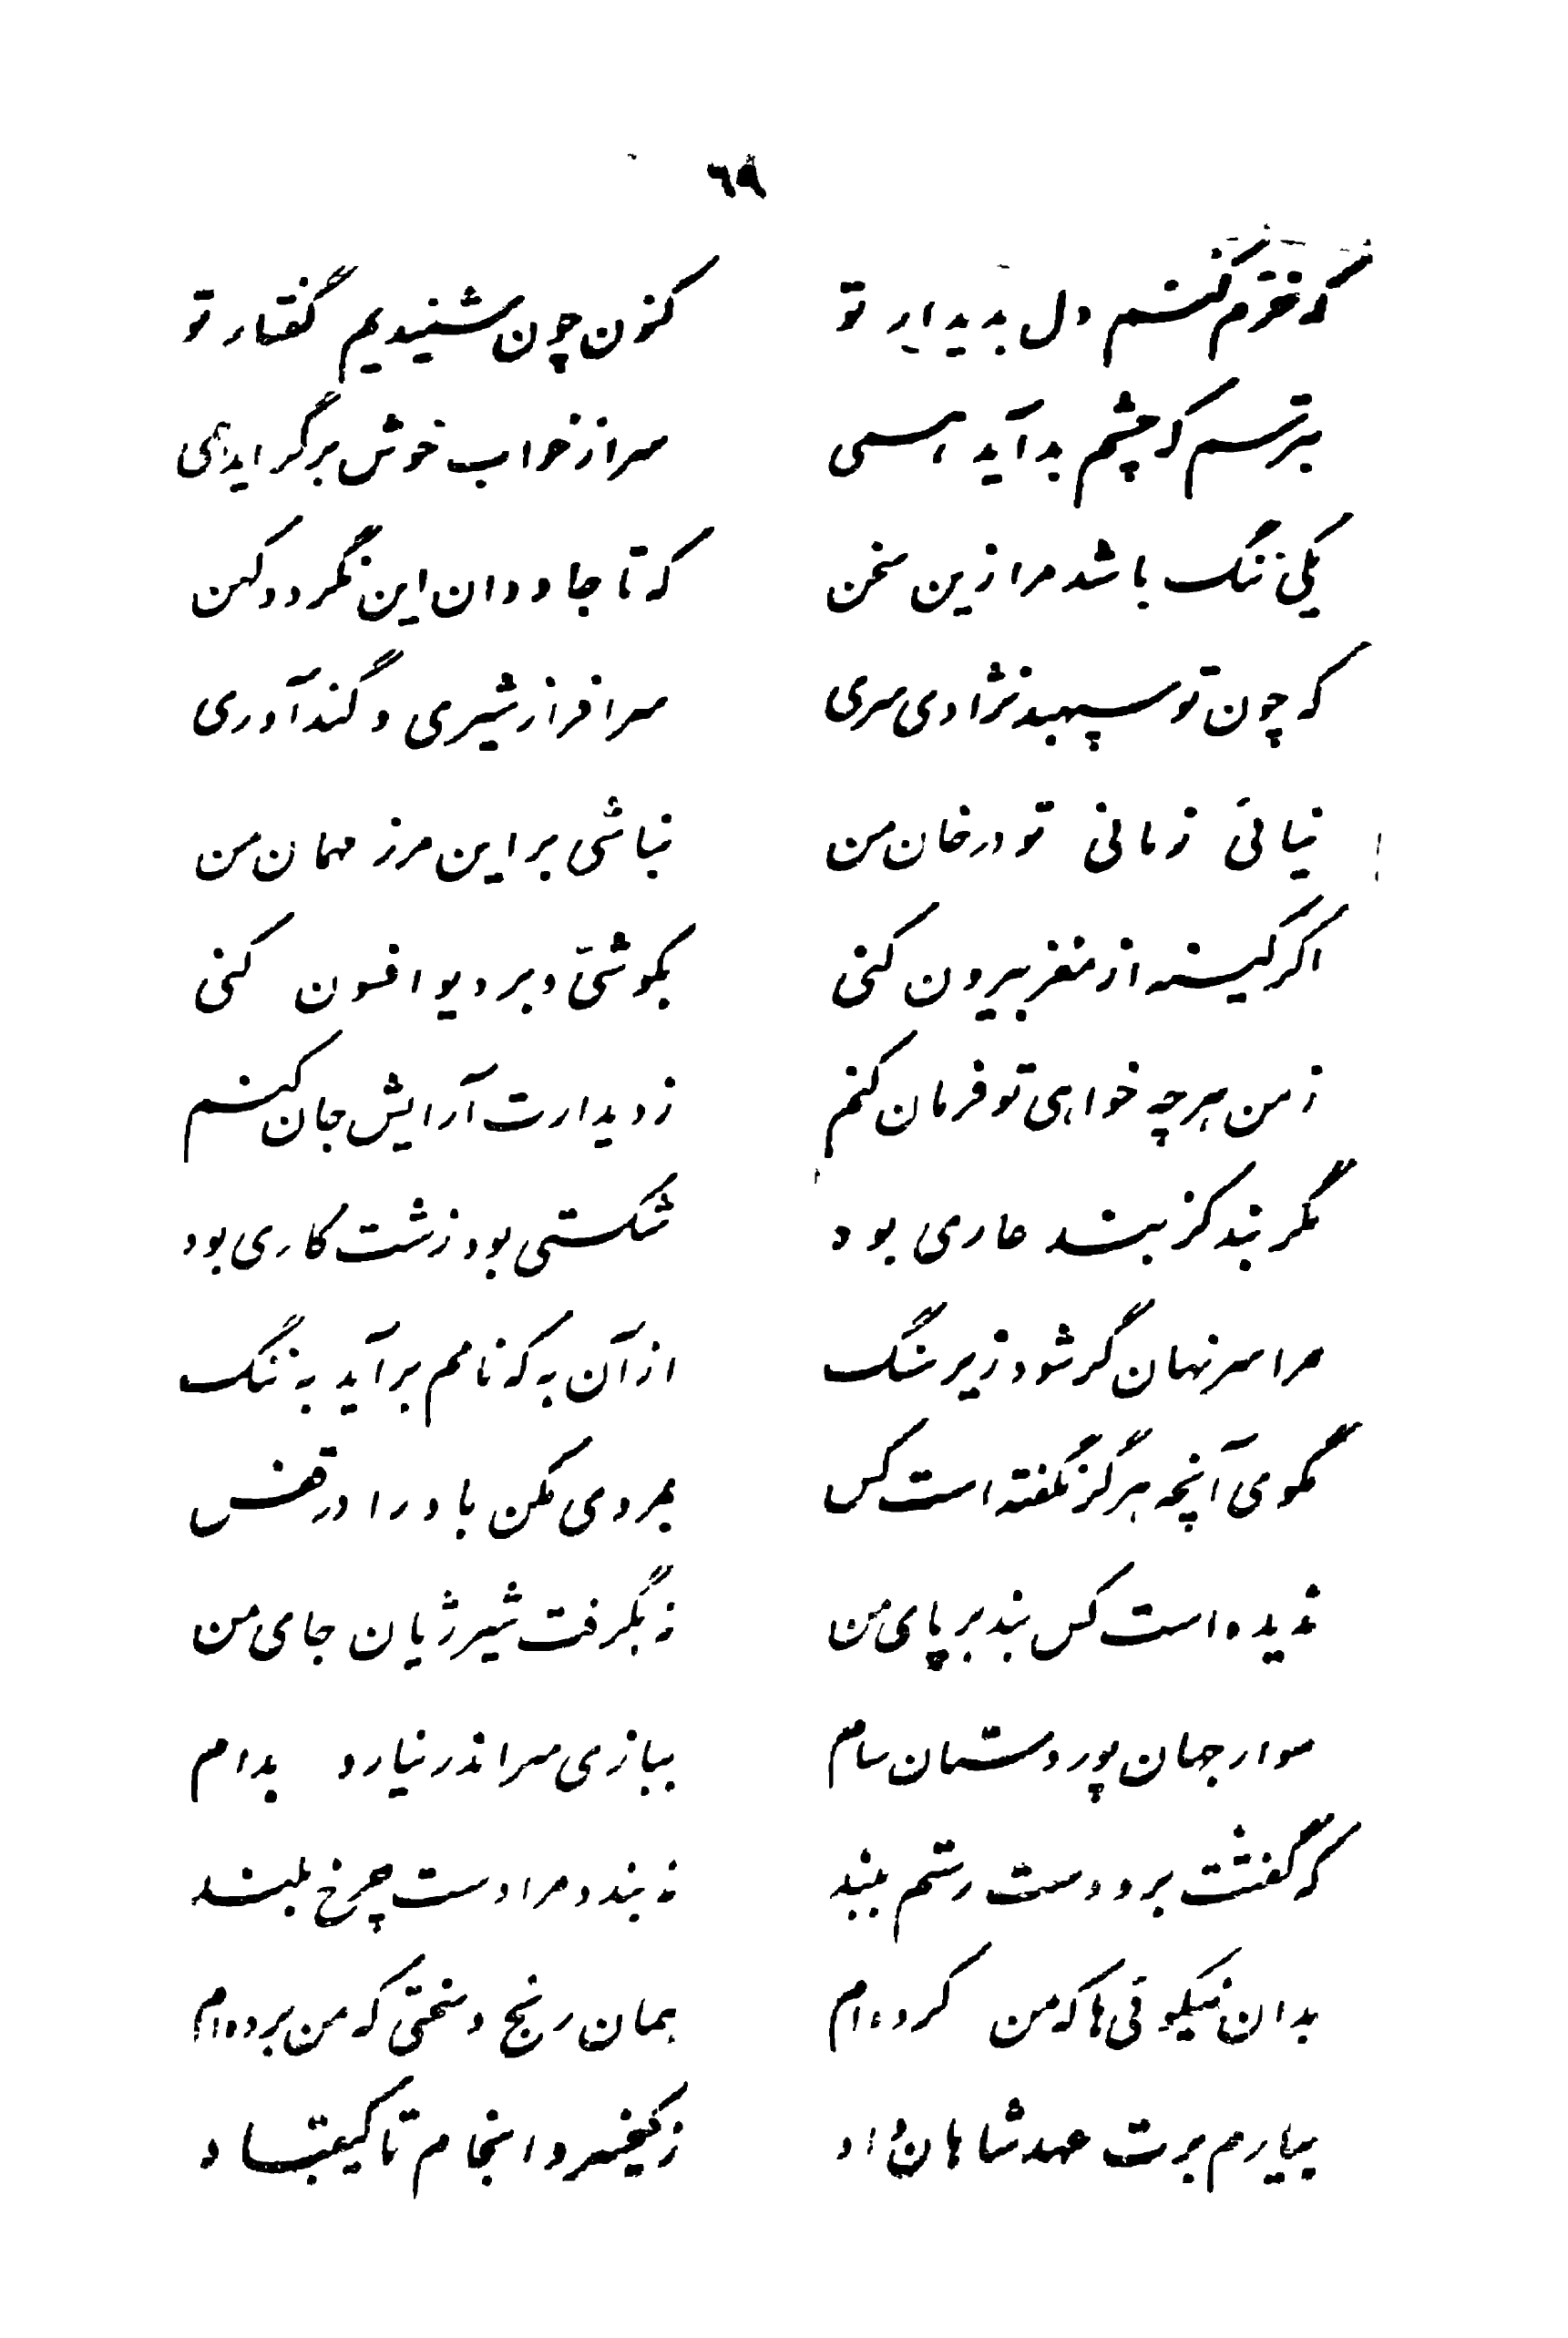 ٦٩
که خرّم کنم دل بدیدار تو کنون چون شنیدیم گفتار تو
بترسم که چشم بد آید همی سر از خواب خوش برگراید همی
یکی ننگ باشد مرا زین سخن که تا جاودان این نگردد کهن
که چون تو سپهبد نژادی سری سرافراز شیری و گندآوری
نیائی زمانی تو در خان من نباشی بر این مرز مهمان من
اگر کینه از مغز بیرون کنی بکوشی و بر دیو افسون کنی
ز من هرچه خواهی تو فرمان کنم ز دیدارت آرایش جان کنم
مگر بند کز بند عاری بود شکستی بود زشت کاری بود
مرا سر نهان گر شود زیر سنگ از آن به که نامم برآید به ننگ
مگوی آنچه هرگز نگفته است کس بمردی مکن باد را در قفس
ندیده است کس بند بر پای من نه بگرفت شیر ژیان جای من
سوار جهان پور دستان سام ببازی سر اندر نیارد بدام
که گفتت برو دست رستم ببند نه بندد مرا دست چرخ بلند
بدان نیکوئی‌ها که من کرده‌ام بمان رنج و سختی که من برده‌ام
بیارم برت عهد شاهان داد ز کیخسرو انجام تا کیقباد